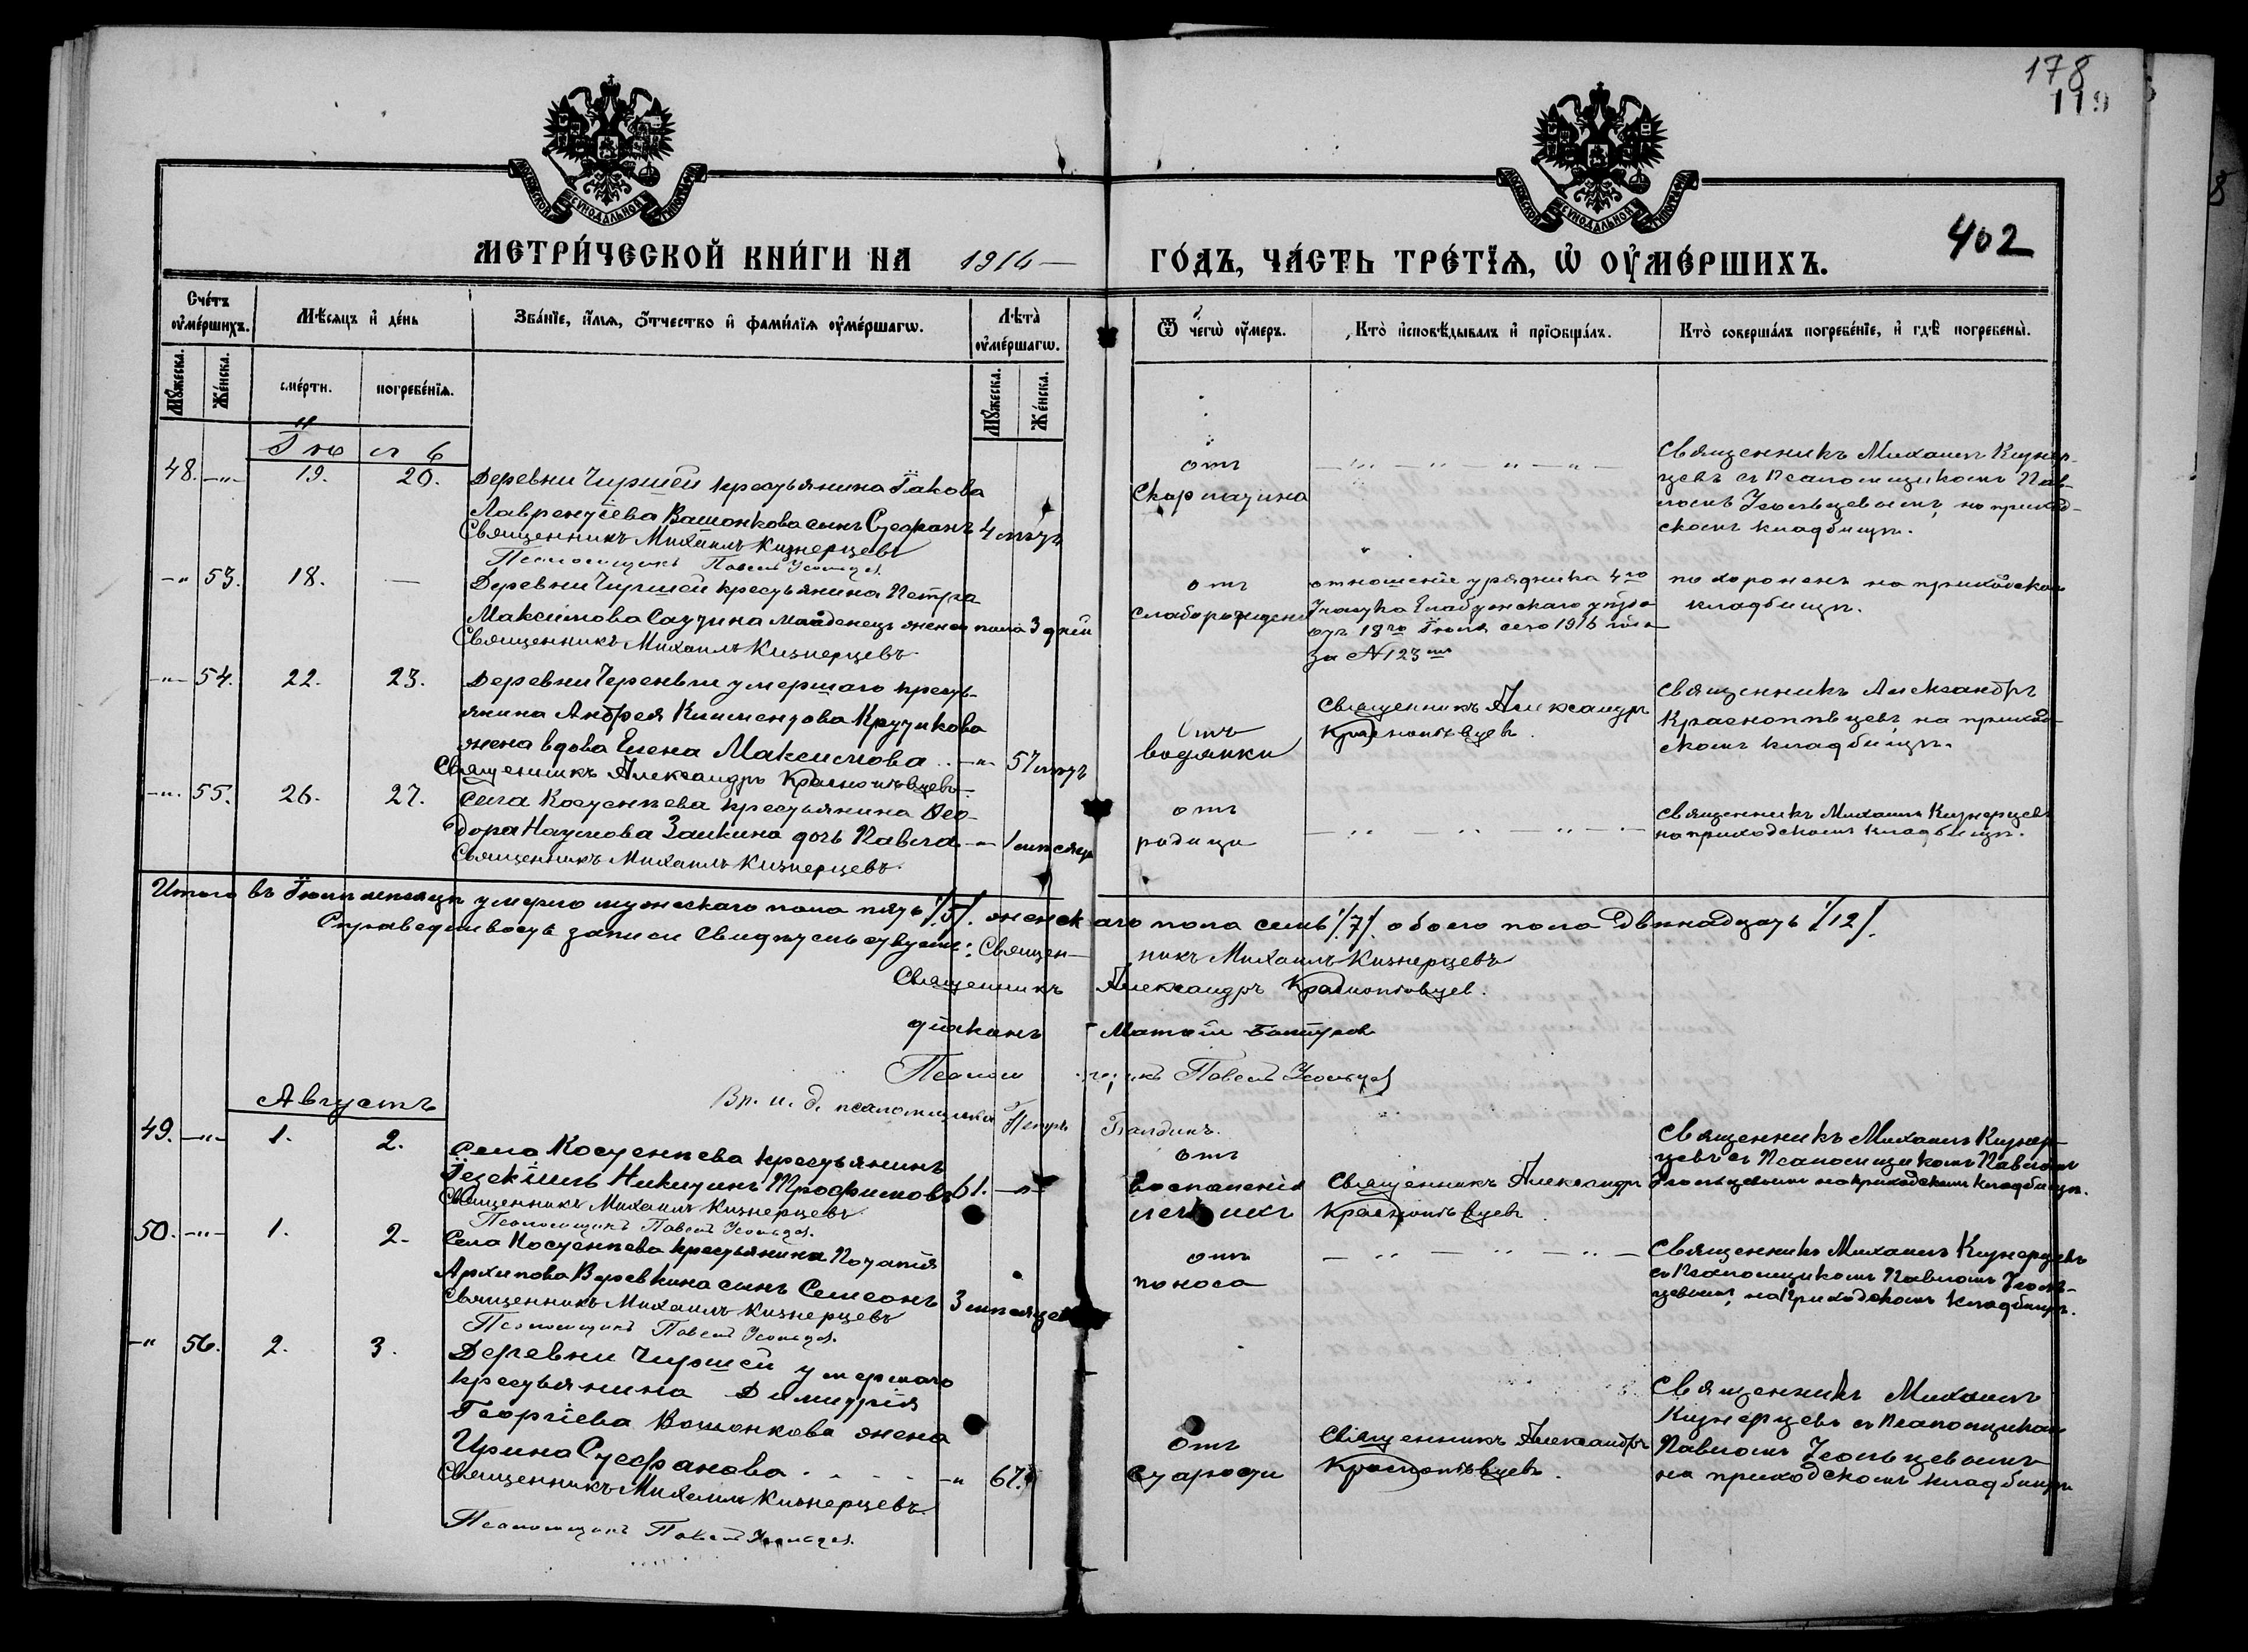 178
119
402
МОСКОВСКОЙ СѴНОДАЛЬНОЙ ТИПОГРАФІИ
МОСКОВСКОЙ СѴНОДАЛЬНОЙ ТИПОГРАФІИ
МЕТРИ́ЧЕСКОЙ КНИ́ГИ НА 1916 ГО́ДЪ, ЧА́СТЬ ТРЕ́ТІѦ, Ѡ ОУ҆МЕ́РШИХЪ.
Сче́тъ оу҆ме́ршихъ.
Мѣ́сяцъ и҆ де́нь
Зва́нїе, и҆́мѧ, ѻ҆́тчество и҆ фами́лїѧ оу҆ме́ршагѡ.
Лѣта̀ оу҆ме́ршагѡ.
Ѿ чегѡ̀ оу҆́меръ.
Кто̀ и҆сповѣ́дывалъ и҆ прїѡбща́лъ.
Кто̀ соверша́лъ погребе́нїе, и҆ гдѣ̀ погребены̀.
Мꙋ́жеска.
Же́нска.
сме́рти.
погребе́нїѧ.
Мꙋ́жеска.
Же́нска.
Іюль
48. —"— 19. 20. Деревни Чиршей крестьянина Іакова
Лаврентіева Вашонкова сынъ Стефанъ 4 лѣтъ
Священникъ Михаилъ Кизнерцевъ
Псаломщикъ Павелъ Усольцев
отъ
скарлатина
Священникъ Михаилъ Кизнер-
цевъ съ Псаломщикомъ Пав-
ломъ Усольцевымъ, на приход-
скомъ кладбищѣ.
—" 53. 18. — Деревни Чиршей крестьянина Петра
Максимова Саутина младенецъ женск. пола 3 дней
Священникъ Михаилъ Кизнерцевъ
отъ
слаборожден.
отношеніе урядника 4го
Участка Елабужскаго уѣзда
отъ 18го Іюля сего 1916 года
за № 123мъ
похороненъ на приходском
кладбищѣ.
—"— 54. 22. 23. Деревни Черенъги умершаго кресть-
янина Андрея Климентова Крутикова
жена вдова Елена Максимова —"— 57 лѣтъ
Священникъ Александръ Краснопѣвцевъ
Отъ
водянки
Священникъ Александръ
Краснопѣвцевъ.
Священникъ Александръ
Краснопѣвцевъ на приход-
скомъ кладбищѣ.
—". 55. 26. 27. Села Костенѣева крестьянина Ѳео-
дора Наумова Заикина дочь Павла —" 1 мѣсяца
Священникъ Михаилъ Кизнерцевъ.
отъ
родимца
Священникъ Михаилъ Кизнерцевъ
на приходскомъ кладбищѣ.
Итого въ Іюлѣ мѣсяцѣ умерло мужескаго пола пять /5/. женскаго пола семь /7/. обоего пола двѣнадцать /12/.
Справедливость записи свидѣтельствуемъ: Священникъ Михаилъ Кизнерцевъ
Священникъ Александръ Краснопѣвцев.
діаконъ Матѳій
Псаломщикъ Павелъ Усольцев
Вр. и. д. псаломщика Петръ
Августъ
49. —"— 1. 2. Села Костенѣева крестьянинъ
Іезекіиль Никитинъ Трофимовъ 61. —"—
Священникъ Михаилъ Кизнерцевъ
Псаломщикъ Павелъ Усольцев.
отъ
воспаленія
легкихъ
Священникъ Александръ
Краснопѣвцевъ.
Священникъ Михаилъ Кизнер-
цевъ съ Псаломщикомъ Павломъ
Усольцевымъ на приходскомъ кладбищѣ.
50. —"— 1. 2. Села Костенѣева крестьянина Потапія
Архипова Веревкина сынъ Симеонъ 3 мѣсяцев
Священникъ Михаилъ Кизнерцевъ
Псаломщикъ Павелъ Усольцев.
отъ
поноса
Священникъ Михаилъ Кизнерцевъ
съ Псаломщикомъ Павломъ Усоль-
цевымъ, на Приходскомъ кладбищѣ.
—" 56. 2. 3. Деревни Чиршей умершаго
крестьянина Димитрія
Георгіева Вашонкова жена
Ирина Стефанова —" 67
Священникъ Михаилъ Кизнерцевъ
Псаломщикъ Павелъ Усольцев.
Отъ
старости
Священникъ Александръ
Краснопѣвцевъ.
Священникъ Михаилъ
Кизнерцевъ съ Псаломщикомъ
Павломъ Усольцевымъ
на приходскомъ кладбищѣ